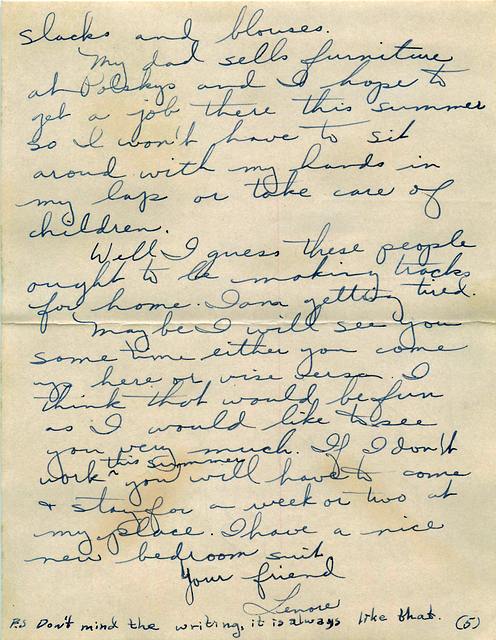 slacks and blouses.
My dad sells furniture
at Polskys and I hope to
get a job there this summer
so I won't have to sit
aroud with my hands in
my lap or take care of
children.
Well I guess these people
ought to be making tracks
for home. I am getting tired.
Maybe I will see you
some time either you come
up here or vise versa. I
think that would be fun
as I would like to see
you very much. If I don't
work ^ this summer you will have to come
& stay for a week or two at
my place. I have a nice
new bedroom suit
Your friend
Lenore
P.S Don't mind the writing, it is always like that. (5)